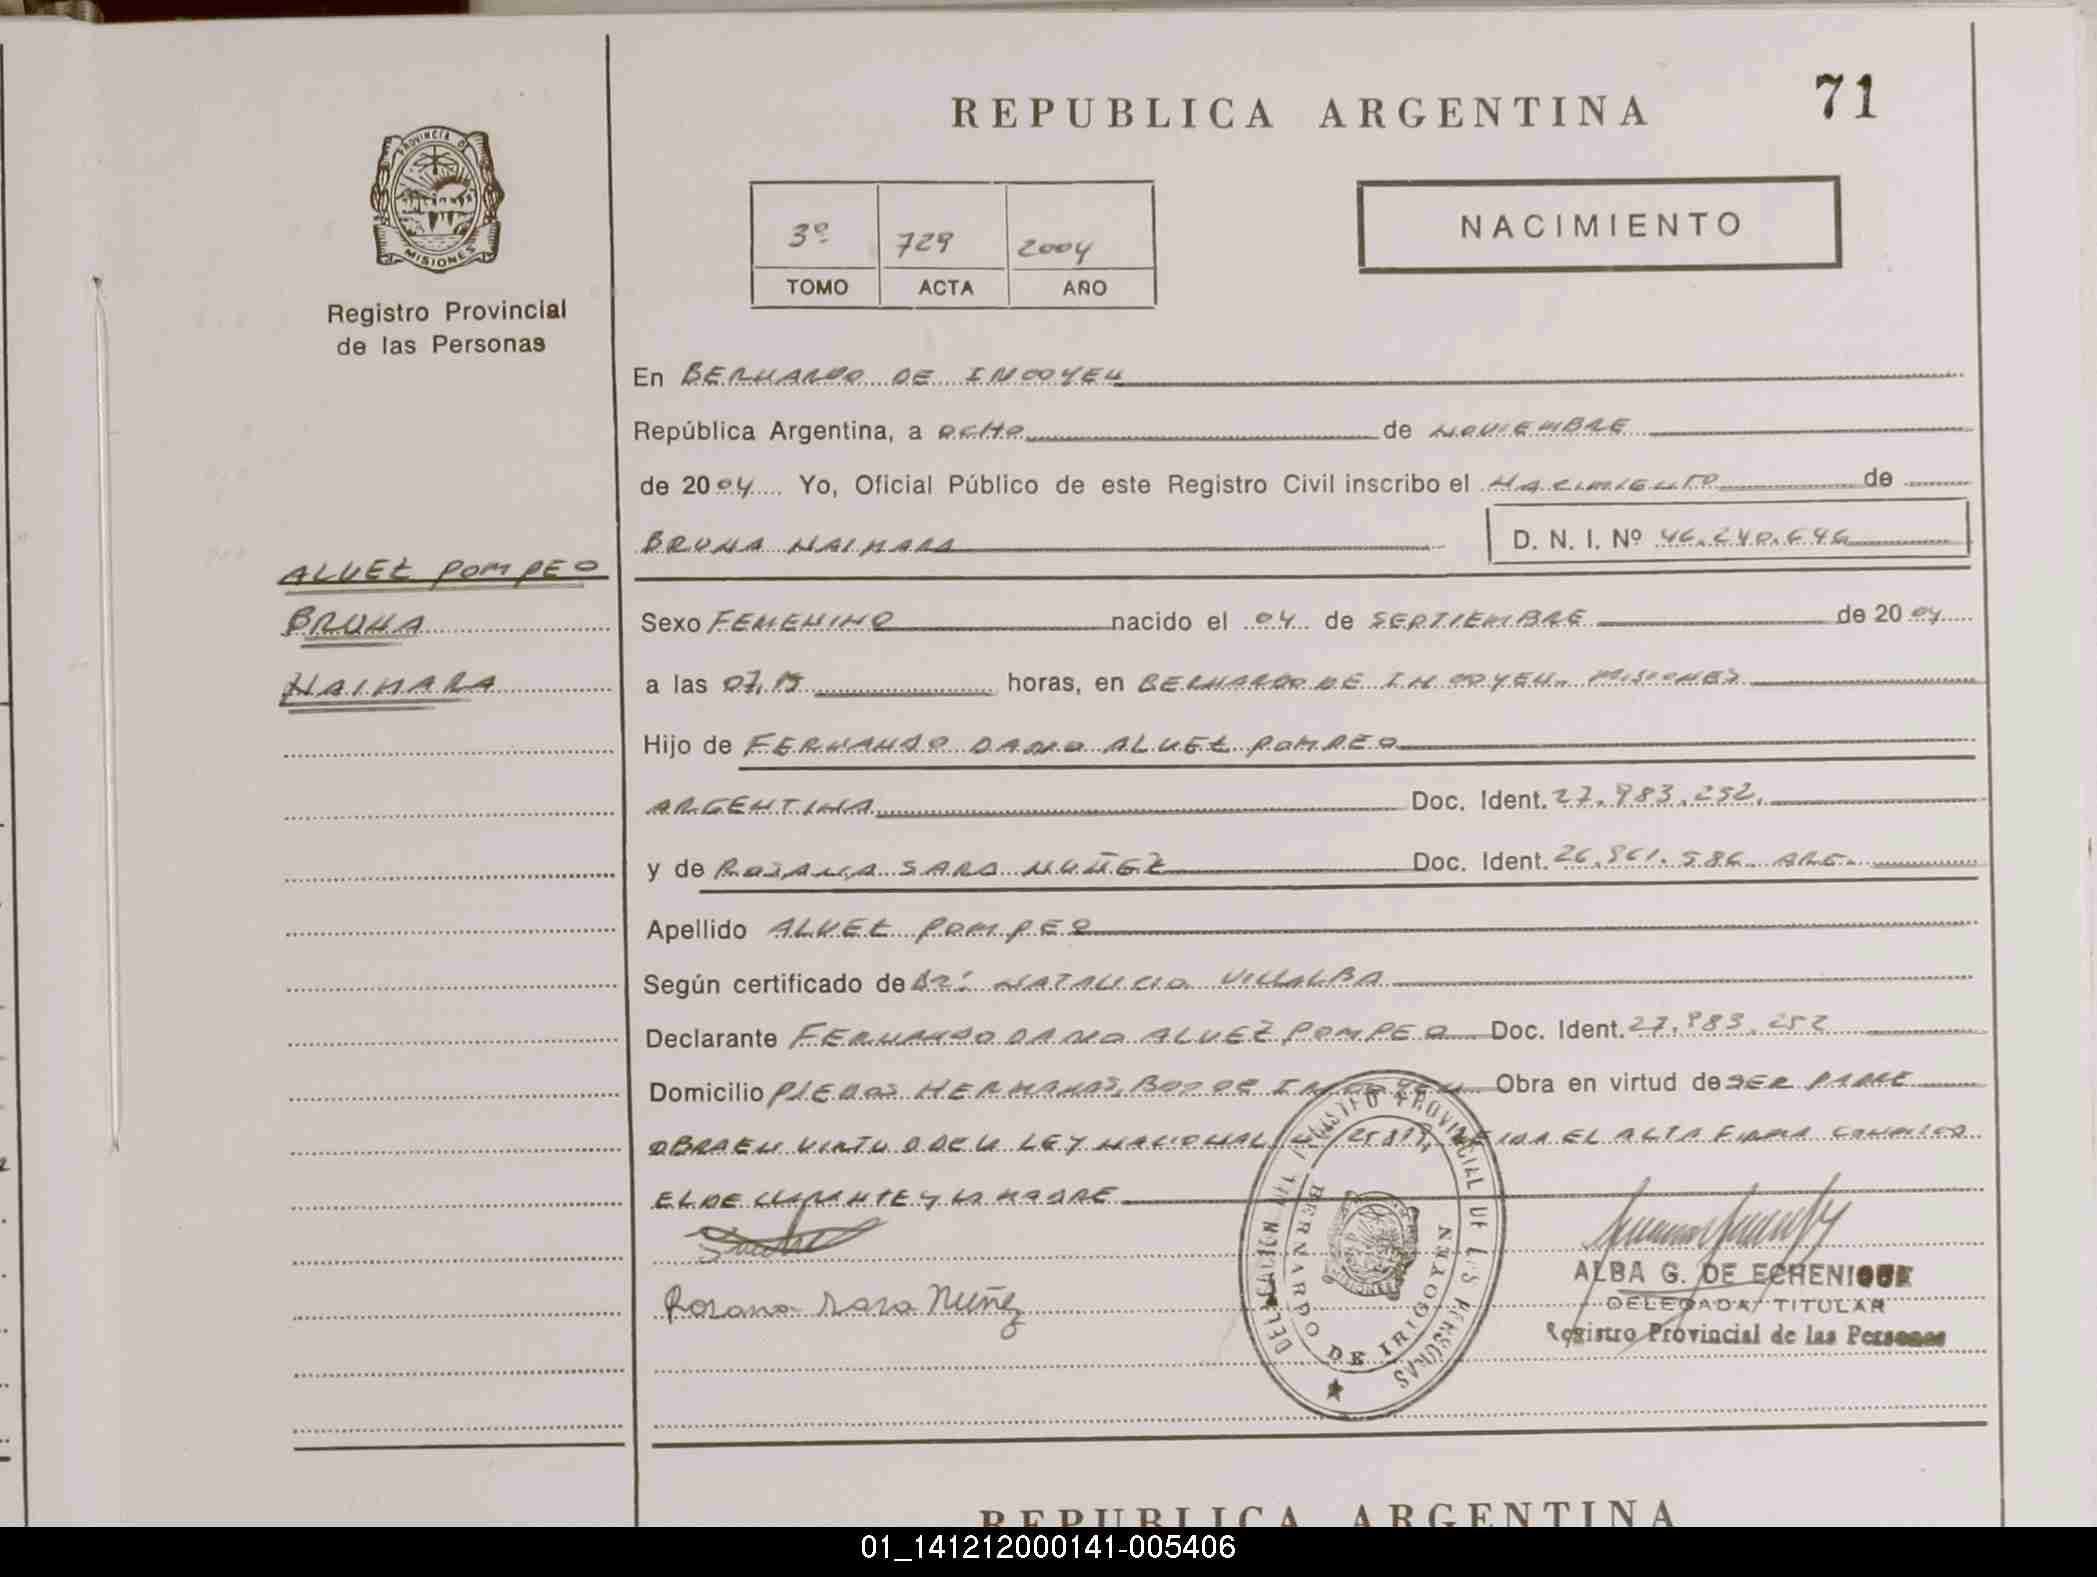 REPUBLICA ARGENTINA
71
PROVINCIA DE MISIONES
Registro Provincial
de las Personas
3º 729 2004
TOMO ACTA AÑO
NACIMIENTO
En BERNARDO DE IRIGOYEN
República Argentina, a OCHO de NOVIEMBRE
de 2004 Yo, Oficial Público de este Registro Civil inscribo el NACIMIENTO de
BRUNA NAIMARA D. N. I. Nº 46.240.646
ALVEZ POMPEO
BRUNA
NAIMARA
Sexo FEMENINO nacido el 04 de SEPTIEMBRE de 2004
a las 07,15 horas, en BERNARDO DE IRIGOYEN. MISIONES
Hijo de FERNANDO DARIO ALVEZ POMPEO
ARGENTINA Doc. Ident. 27.983.252.
y de ROSANA SARA NUÑEZ Doc. Ident. 26.861.586 ARG.
Apellido ALVEZ POMPEO
Según certificado de DR: NATALICIO VILLALBA
Declarante FERNANDO DARIO ALVEZ POMPEO Doc. Ident. 27.983.252
Domicilio HERMANAS, BDO DE IRIGOYEN Obra en virtud de SER PADRE
OBRA EN VIRTUD DE LA LEY NACIONAL Nº 25819, EL ACTA FIRMA CONMIGO
EL DECLARANTE Y LA MADRE
Rosana Sara Nuñez
DELEGACION DEL REGISTRO PROVINCIAL DE LAS PERSONAS
BERNARDO DE IRIGOYEN
ALBA G. DE ECHENIQUE
DELEGADA TITULAR
Registro Provincial de las Personas
REPUBLICA ARGENTINA
01_141212000141-005406